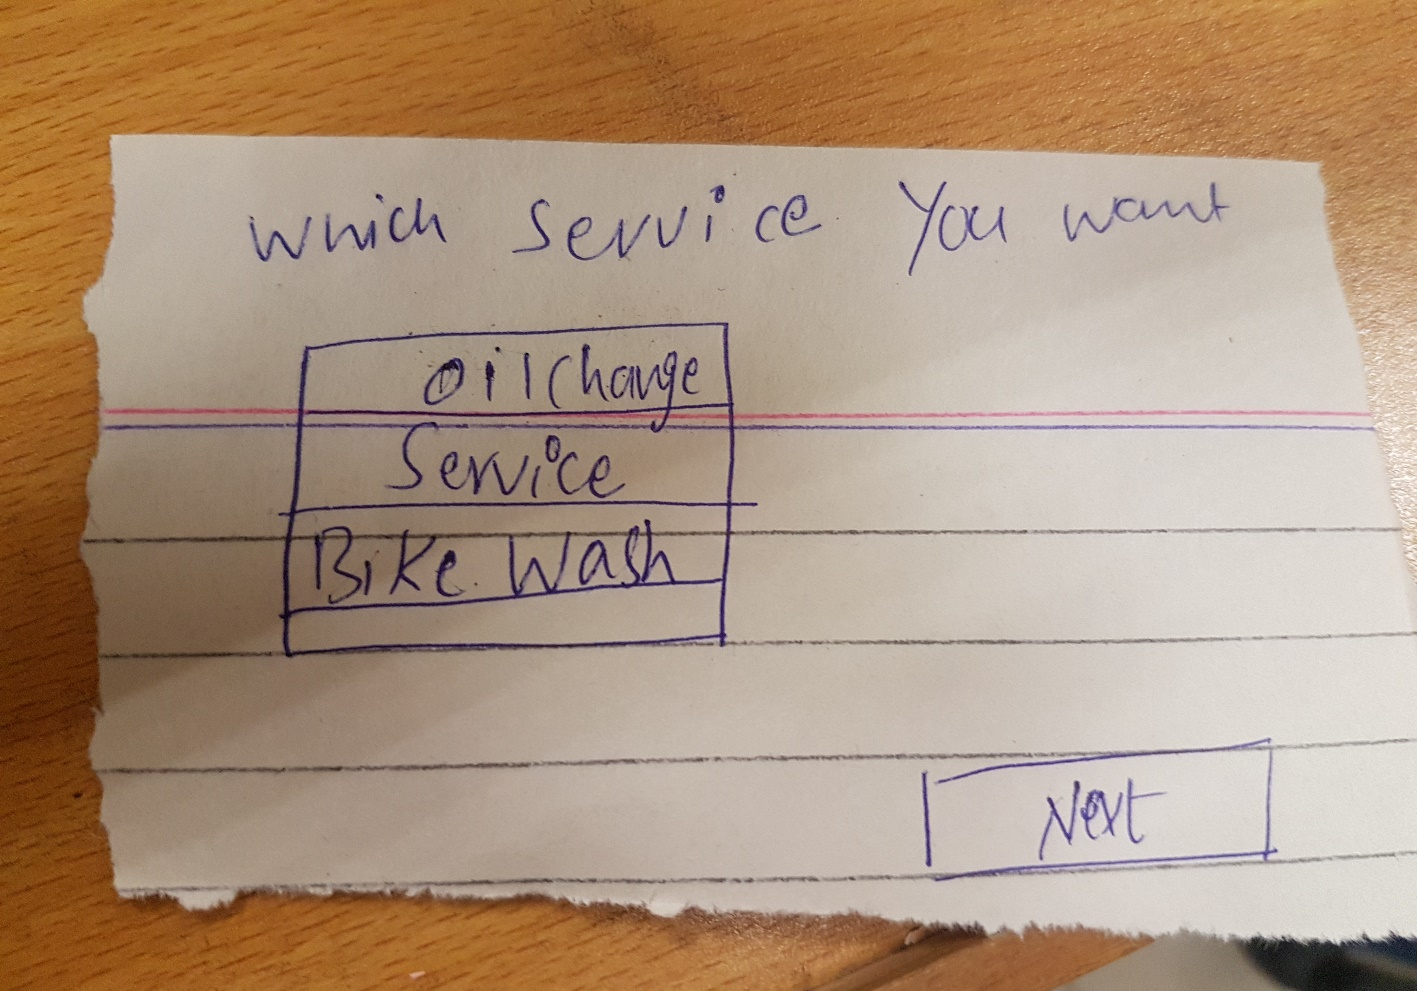 Which Service You want
Oil Change
Service
Bike Wash
Next